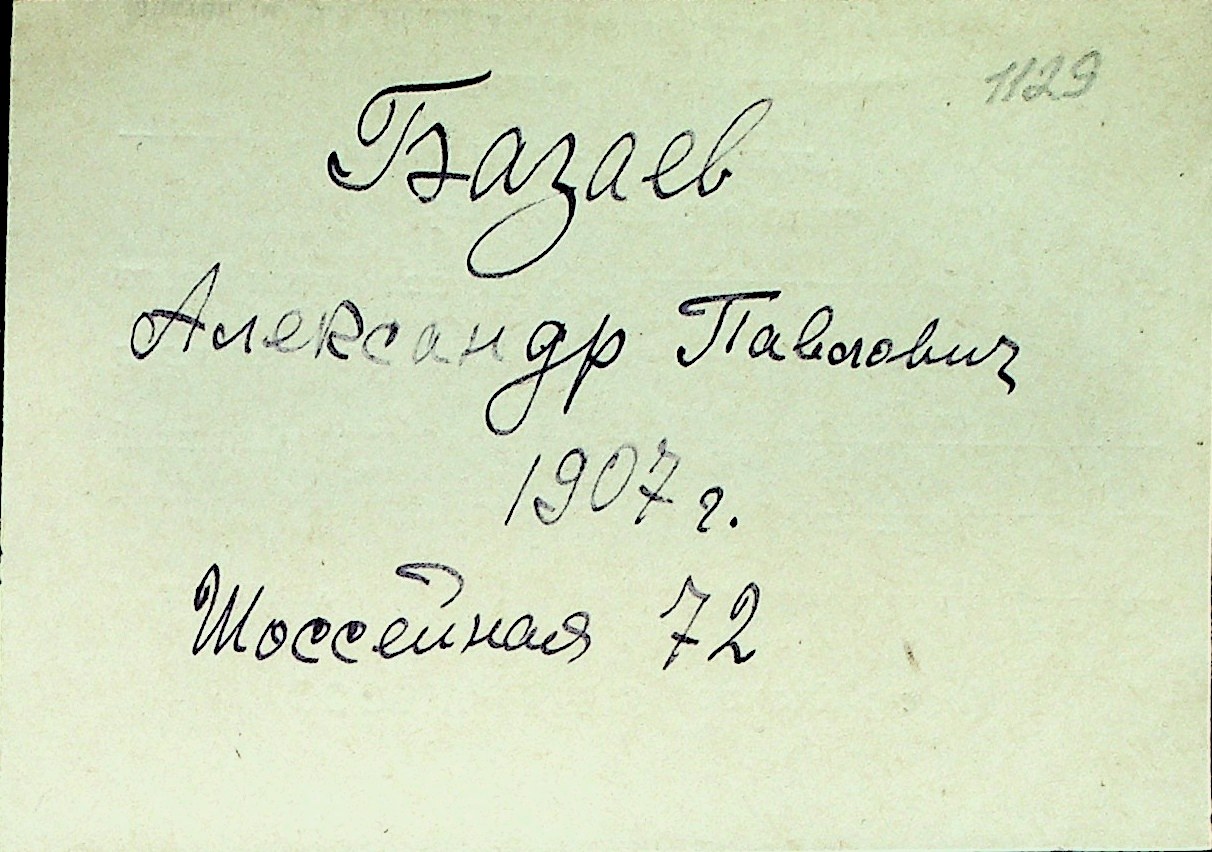 1129
Базаев
Александр Павлович
1907 г.
Шоссейная 72